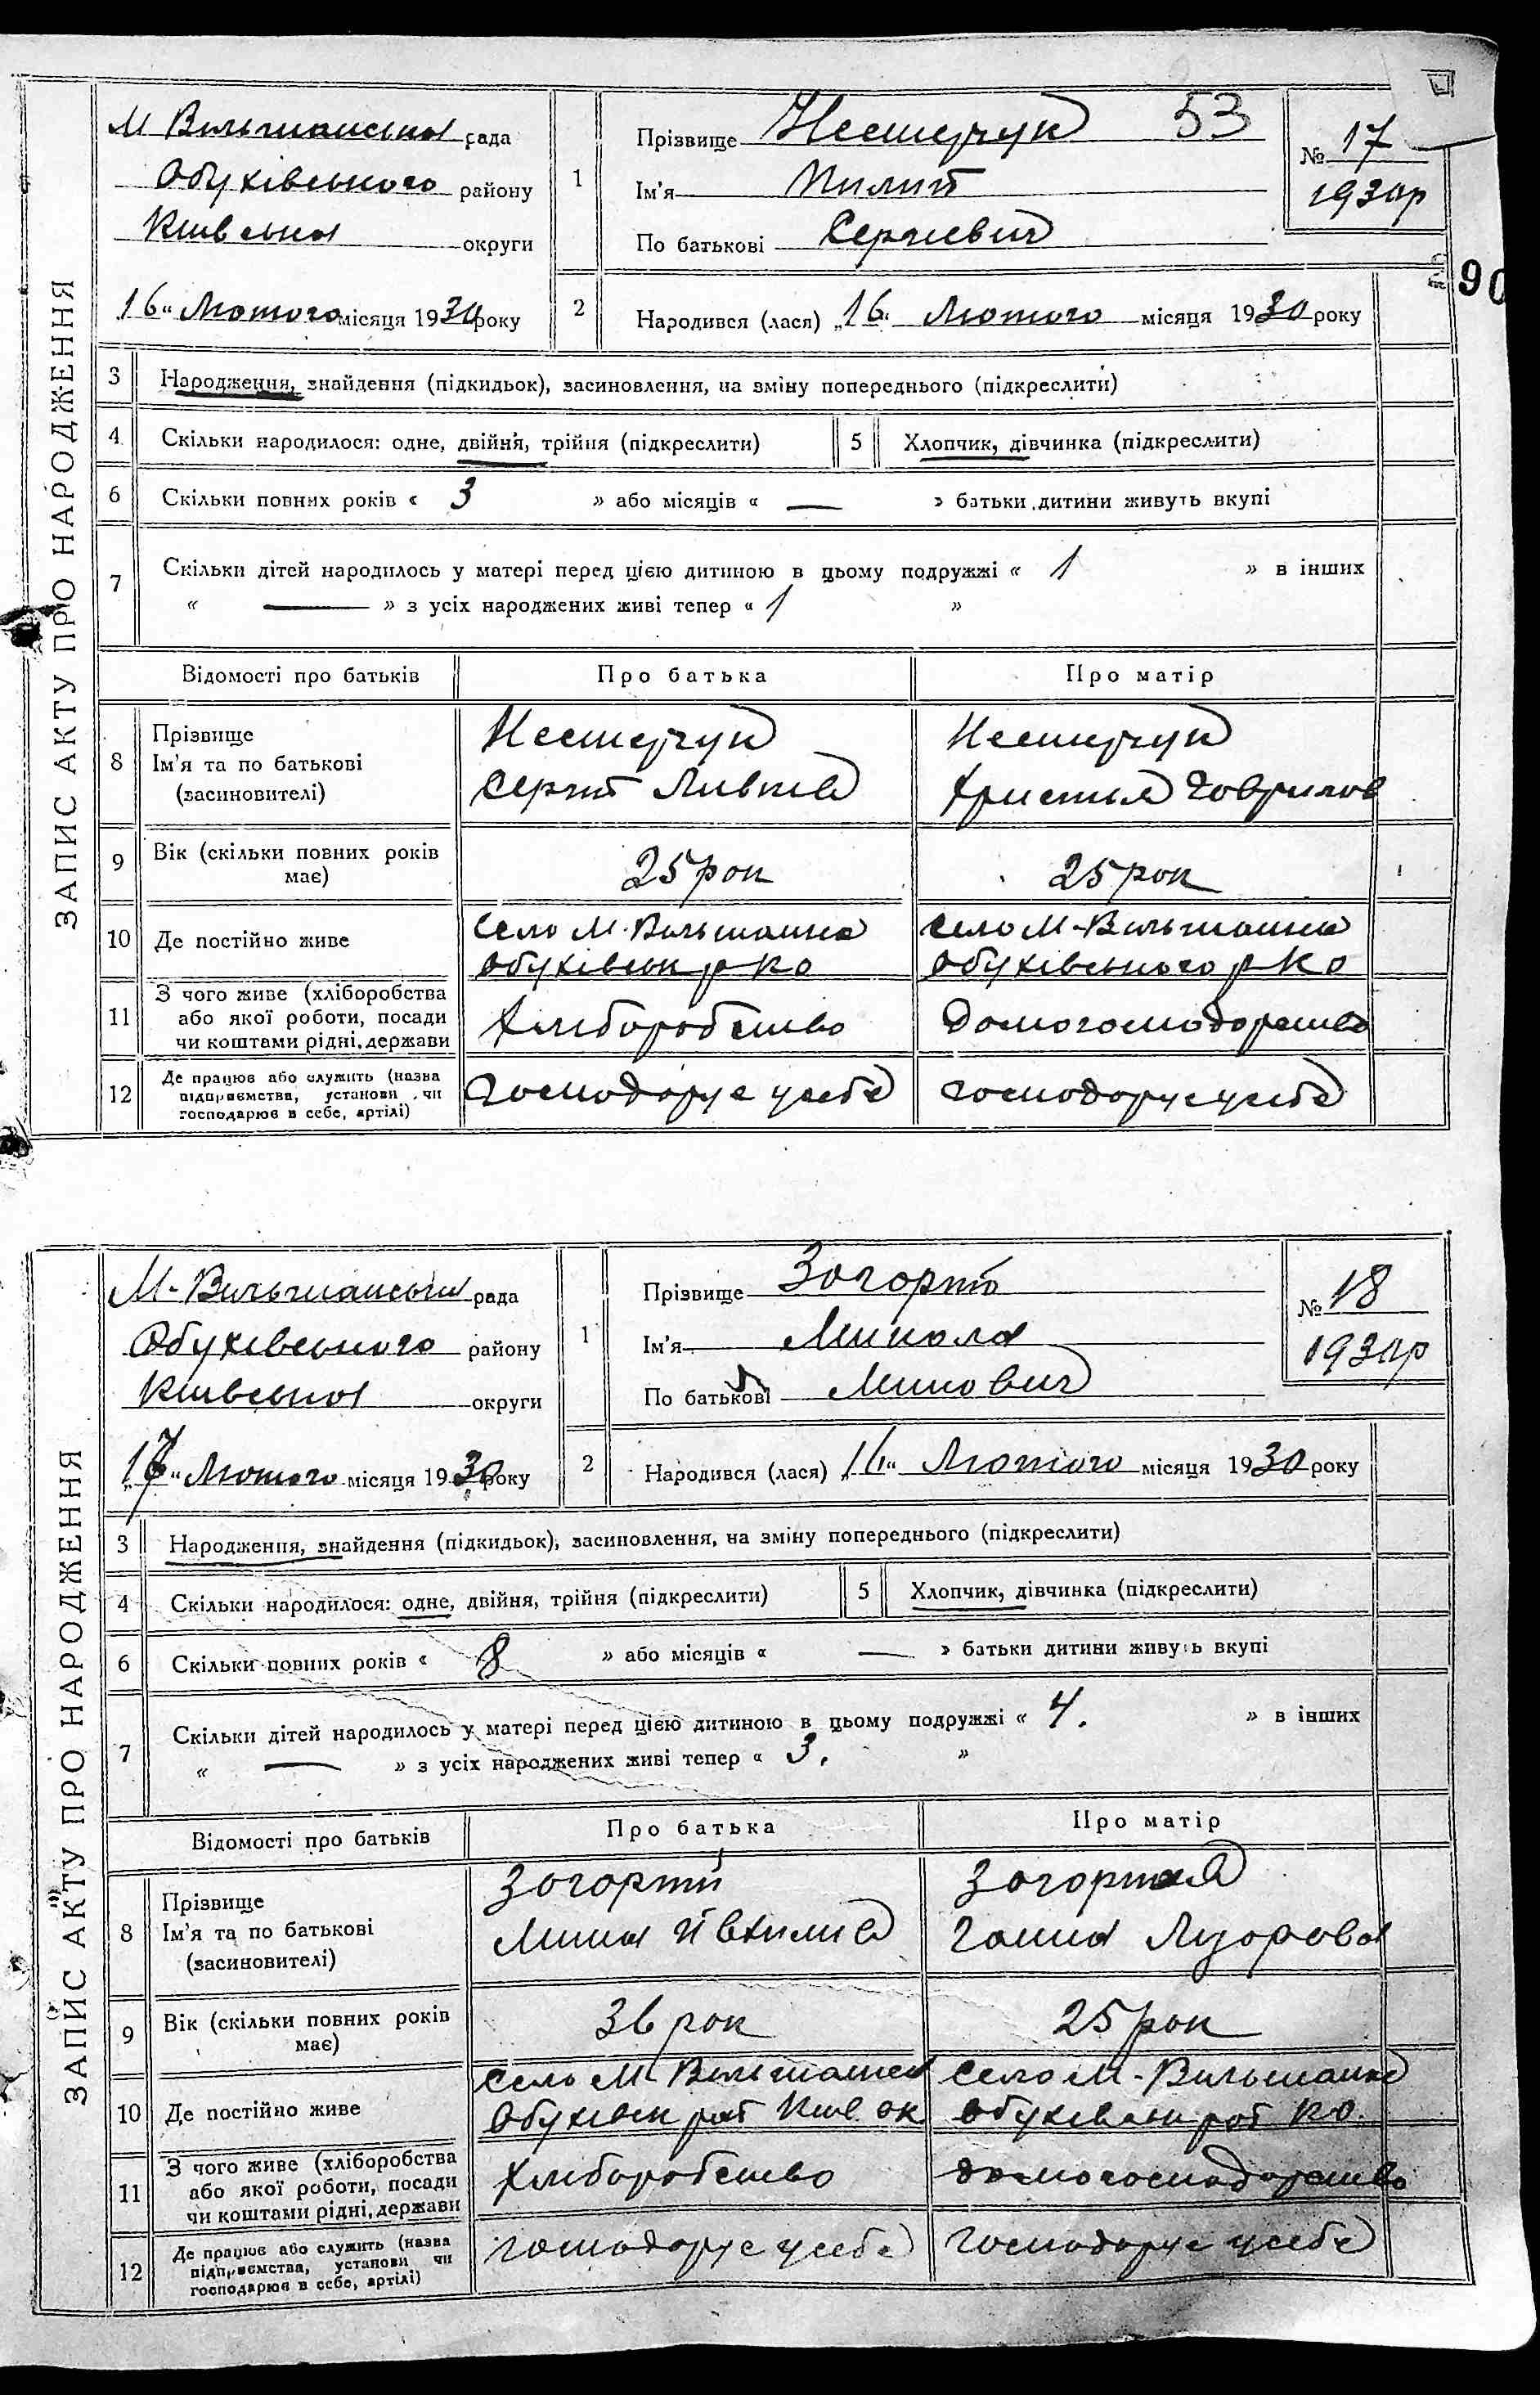 ЗАПИС АКТУ ПРО НАРОДЖЕННЯ
М Вильшанська рада
Обухівського району
Київська округи
16 " Лютого місяця 1930 року
1
Прізвище Нестерчук 53
Ім'я Пилип
По батькові Сергиевич
№ 17
1930 р
90
2
Народився (лася) „16" Лютого місяця 1930 року
3 Народження, знайдення (підкидьок), засиновлення, на зміну попереднього (підкреслити)
4 Скільки народилося: одне, двійня, трійня (підкреслити) 5 Хлопчик, дівчинка (підкреслити)
6 Скільки повних років « 3 » або місяців « — » батьки дитини живуть вкупі
7 Скільки дітей народилось у матері перед цією дитиною в цьому подружжі « 1 » в інших
« — » з усіх народжених живі тепер « 1 »
Відомості про батьків Про батька Про матір
8 Прізвище
Ім'я та по батькові
(засиновителі)
Нестерчук
Сергий
Нестерчук
Христья Говрилов
9 Вік (скільки повних років
має)
25 рок 25 рок
10 Де постійно живе
Село М. Вильшанка
Обухівськ р КО
село М-Вильшанка
Обухівського р КО
11 З чого живе (хліборобства
або якої роботи, посади
чи коштами рідні, держави
Хлиборобство Домогосподорство
12 Де працює або служить (назва
підприємства, установи чи
господарює в себе, артілі)
Господорує усебе господорує усебе
ЗАПИС АКТУ ПРО НАРОДЖЕННЯ
М-Вильшанська рада
Обухівського району
Київська округи
„17" Лютого місяця 1930 року
1
Прізвище Зогортй
Ім'я Микола
По батькові Минович
№ 18
1930 р
2
Народився (лася) „16" Лютого місяця 1930 року
3 Народження, знайдення (підкидьок), засиновлення, на зміну попереднього (підкреслити)
4 Скільки народилося: одне, двійня, трійня (підкреслити) 5 Хлопчик, дівчинка (підкреслити)
6 Скільки повних років « 8 » або місяців « — » батьки дитини живуть вкупі
7 Скільки дітей народилось у матері перед цією дитиною в цьому подружжі « 4. » в інших
« — » з усіх народжених живі тепер « 3. »
Відомості про батьків Про батька Про матір
8 Прізвище
Ім'я та по батькові
(засиновителі)
Зогортй
Мина
Зогортая
Гання Лузорова
9 Вік (скільки повних років
має)
36 рок 25 рок
10 Де постійно живе
село М Вильшанка
Обухівськ рай Київ ок
село М-Вильшанка
Обухівськ рай КО.
11 З чого живе (хліборобства
або якої роботи, посади
чи коштами рідні, держави
Хлиборобство домогосподорство
12 Де працює або служить (назва
підприємства, установи чи
господарює в себе, артілі)
господорує усебе господорує усебе